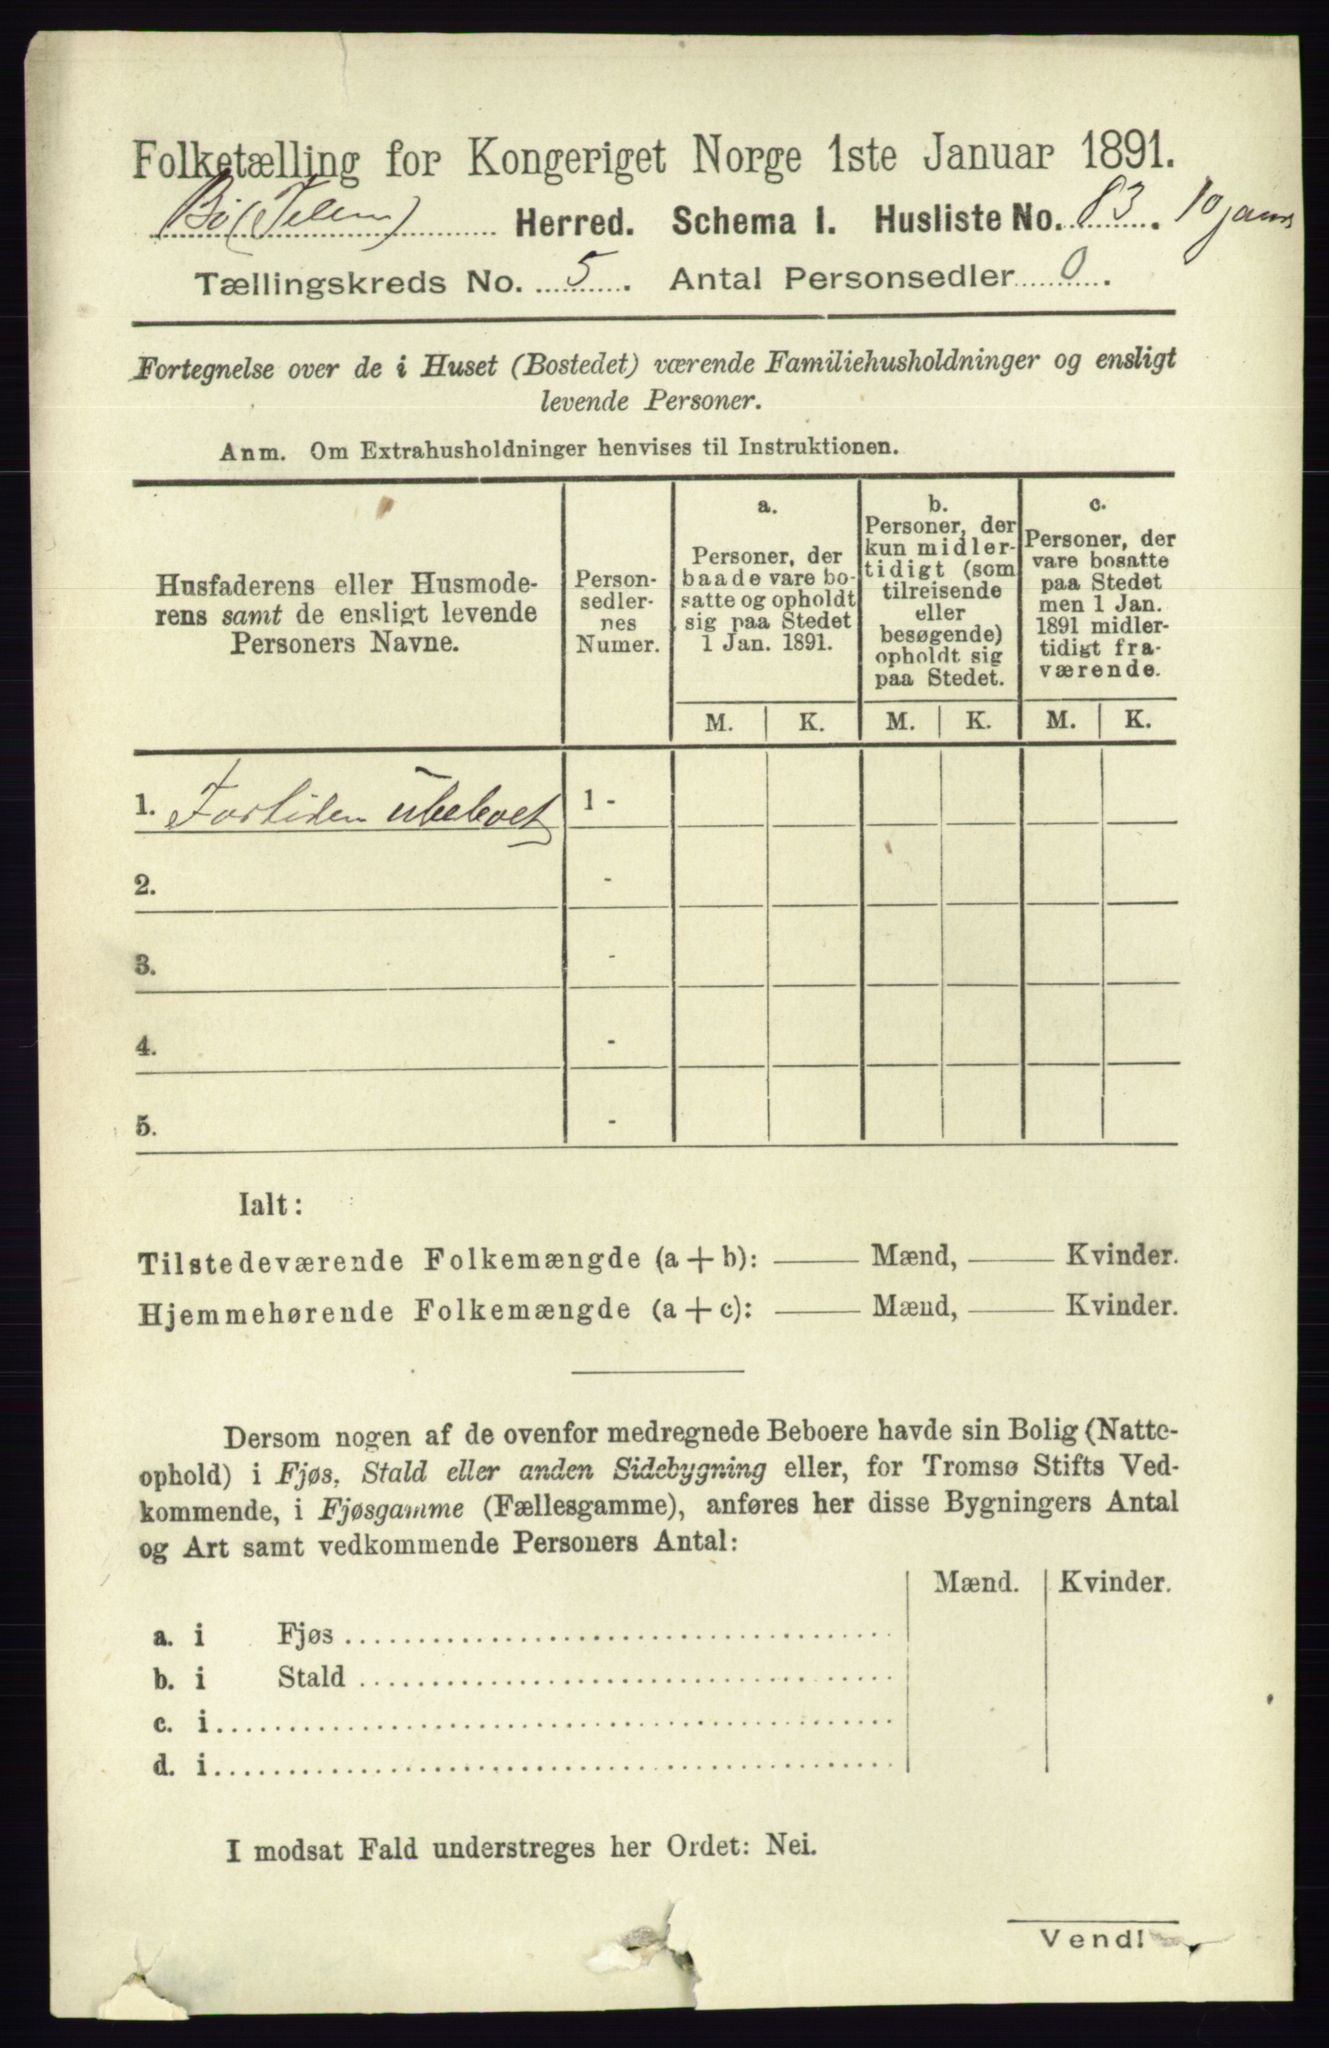 Folketælling for Kongeriget Norge 1ste Januar 1891.
Bø (Telem) Herred. Schema I. Husliste No. 83.
Tællingskreds No. 5. Antal Personsedler 0.
Fortegnelse over de i Huset (Bostedet) værende Familiehusholdninger og ensligt
levende Personer.
Anm. Om Extrahusholdninger henvises til Instruktionen.
Husfaderens eller Husmode-
rens samt de ensligt levende
Personers Navne.
Person-
sedler-
nes
Numer.
a.
Personer, der
baade vare bo-
satte og opholdt
sig paa Stedet
1 Jan. 1891.
b.
Personer, der
kun midler-
tidigt (som
tilreisende
eller
besøgende)
opholdt sig
paa Stedet.
c.
Personer, der
vare bosatte
paa Stedet
men 1 Jan.
1891 midler-
tidigt fra-
værende.
M. K. M. K. M. K.
1. Fortiden ubeboet 1 -
2. -
3. -
4. -
5. -
Ialt:
Tilstedeværende Folkemængde (a + b): —— Mænd, —— Kvinder.
Hjemmehørende Folkemængde (a + c): —— Mænd, —— Kvinder.
Dersom nogen af de ovenfor medregnede Beboere havde sin Bolig (Natte-
ophold) i Fjøs, Stald eller anden Sidebygning eller, for Tromsø Stifts Ved-
kommende, i Fjøsgamme (Fællesgamme), anføres her disse Bygningers Antal
og Art samt vedkommende Personers Antal:
Mænd. Kvinder.
a. i Fjøs
b. i Stald
c. i
d. i
I modsat Fald understreges her Ordet: Nei.
Vend!